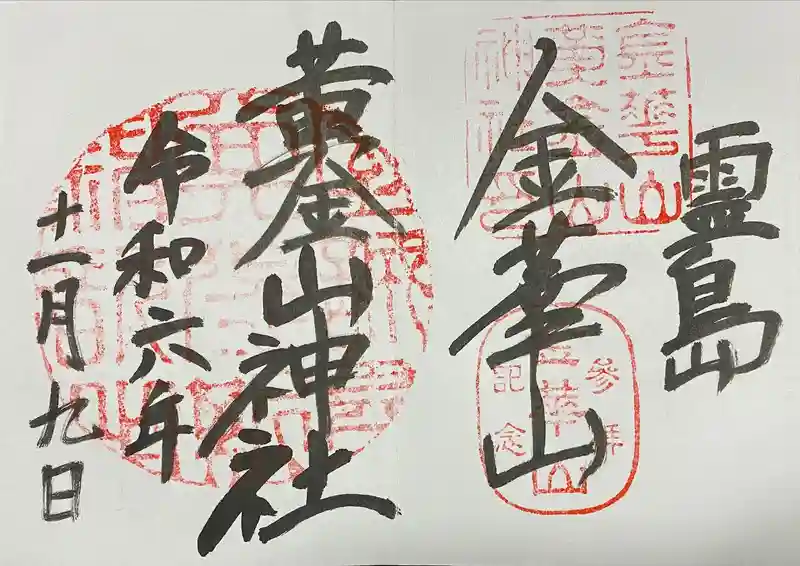 霊島
金華山
黄金山神社
令和六年
十一月九日
金華山
黄金山
神社印
参拝
記念
金華山